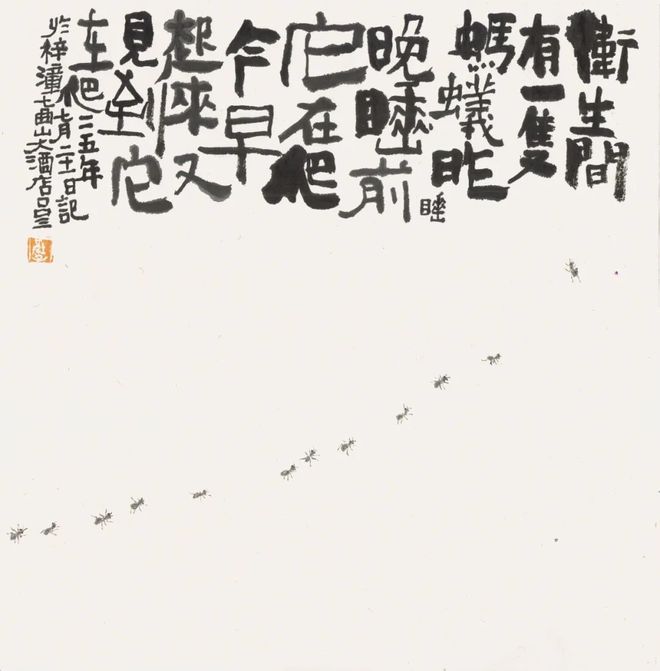 衛生間
有一隻
螞蟻昨
晚睡前
睡
它在爬
今早
起來又
見到它
在爬二五年
七月二十一日記
於梓潼七曲山大酒店